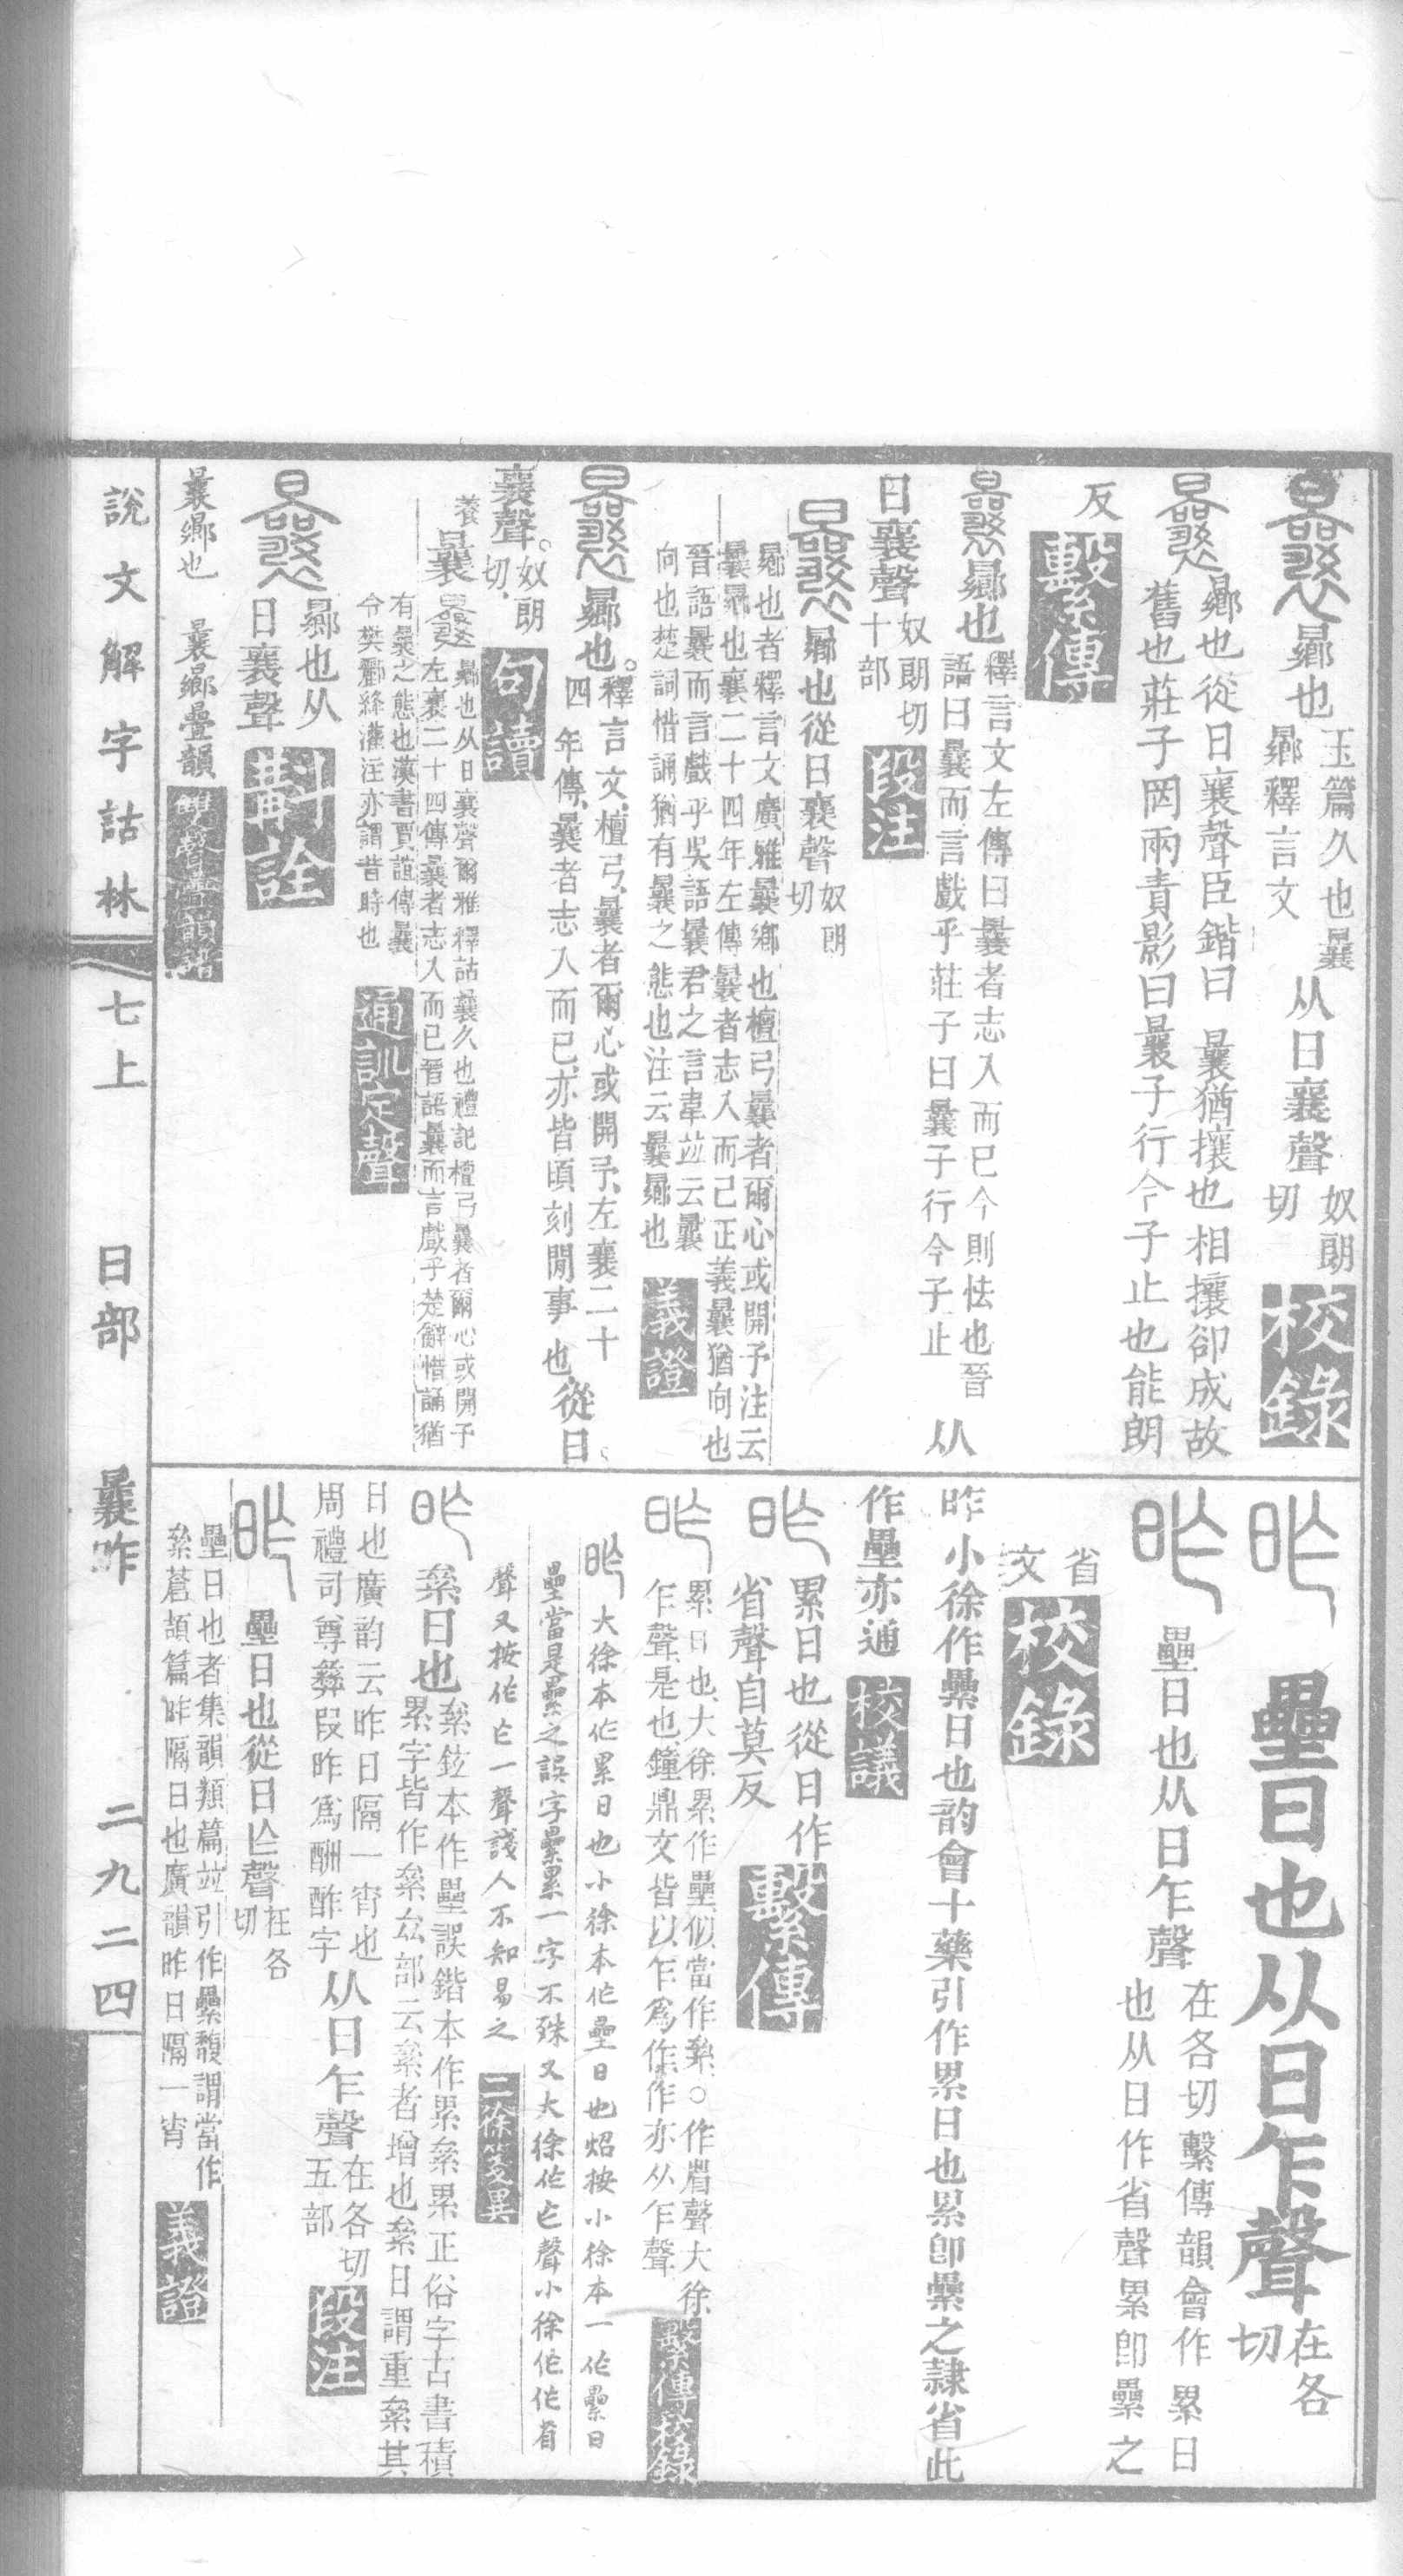 曏也
玉篇久也曩
曏釋言文
从日襄聲
奴朗
切
校錄
曏也從日襄聲臣鍇曰曩猶攘也相攘卻成故
舊也莊子罔兩責影曰曩子行今子止也能朗
反
繫傳
曏也
釋言文左傳曰曩者志入而已今則怯也晉
語曰曩而言戲乎莊子曰曩子行今子止
从
日襄聲
奴朗切
十部
段注
曏也從日襄聲
奴朗
切
曏也者釋言文廣雅曩鄉也檀弓曩者爾心或開予注云
曩曏也襄二十四年左傳曩者志入而已正義曩猶向也
晉語曩而言戲乎吳語曩君之言韋竝云曩
向也楚詞惜誦猶有曩之態也注云曩曏也
義證
曏也。
釋言文、檀弓、曩者爾心或開予、左襄二十
四年傳、曩者志入而已、亦皆頃刻閒事也、
從日、
襄聲。
奴朗
切、
句讀
養
曩
曏也从日襄聲爾雅釋詁曩久也禮記檀弓曩者爾心或開予
左襄二十四傳曩者志入而已晉語曩而言戲乎楚辭惜誦猶
有曩之態也漢書賈誼傳曩
令樊酈絳灌注亦謂昔時也
通訓定聲
曏也从
日襄聲
斠詮
曩曏也 曩曏疊韻
雙聲疊韻譜
壘日也从日乍聲
在各
切
壘日也从日乍聲
在各切繫傳韻會作累日
也从日作省聲累卽壘之
省
文
校錄
昨小徐作纍日也韵會十藥引作累日也累卽纍之隷省此
作壘亦通
校議
累日也從日作
省聲自莫反
繫傳
累日也、大徐累作壘似當作絫○作省聲大徐
乍聲、是也、鐘鼎文皆以乍爲作、作亦从乍聲
繫傳校錄
大徐本作累日也小徐本作壘日也炤按小徐本一作纍日
壘當是纍之誤字纍累一字不殊又大徐作乍聲小徐作作省
聲又按作乍一聲譌人不知易之
二徐箋異
絫日也
絫鉉本作壘誤鍇本作累絫累正俗字古書積
累字皆作絫厽部云絫者增也絫日謂重絫其
日也廣韵云昨日隔一宵也
周禮司尊彝叚昨爲酬酢字
从日乍聲
在各切
五部
段注
壘日也從日乍聲
在各
切
壘日也者集韻類篇竝引作纍馥謂當作
絫蒼頡篇昨隔日也廣韻昨日隔一宵
義證
說文解字詁林 七上 日部 曩昨 二九二四